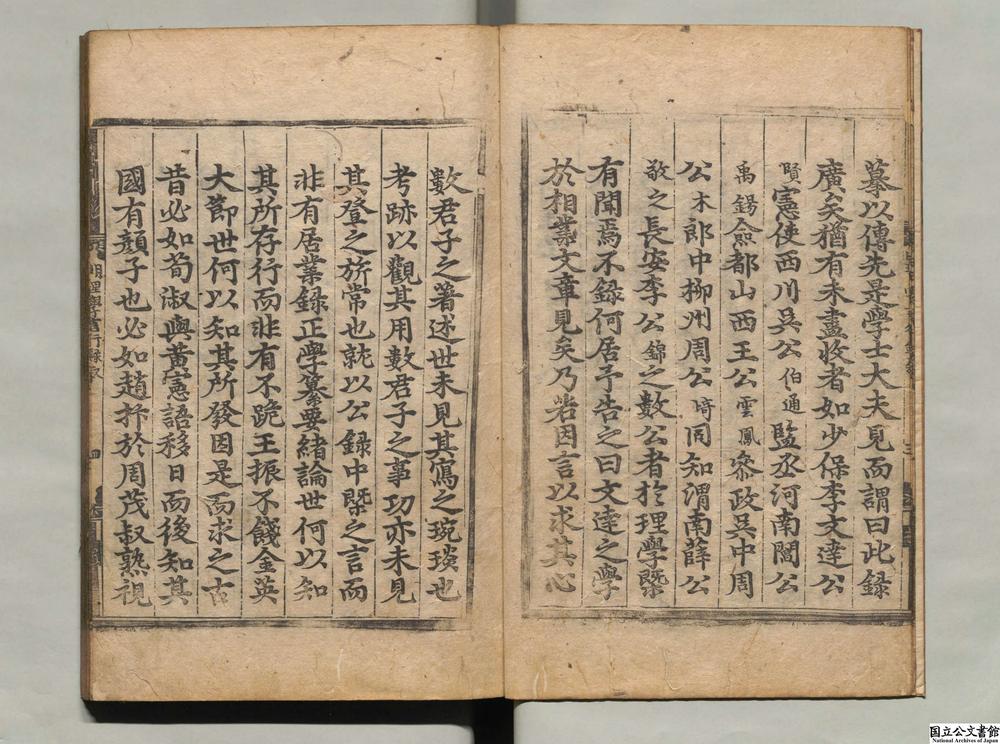 摹以傳先是學士大夫見而謂曰此録
廣矣猶有未盡收者如少保李文達公
賢憲使西川吳公伯通監丞河南閻公
禹錫僉都山西王公雲鳳叅政吳中周
公木郎中柳州周公𤦺同知渭南薛公
敬之長安李公錦之數公者於理學槩
有聞焉不録何居予告之曰文達之學
於相業文章見矣乃若因言以求其心
數君子之著述世未見其寫之琬琰也
考跡以觀其用數君子之事功亦未見
其登之旂常也就以公録中槩之言而
非有居業録正學纂要緒論世何以知
其所存行而非有不跪王振不餞金英
大節世何以知其所發因是而求之古
昔必如荀淑與黃憲語移日而後知其
國有顏子也必如趙抃於周茂叔熟視
明理學
四
国立公文書館
National Archives of Japan